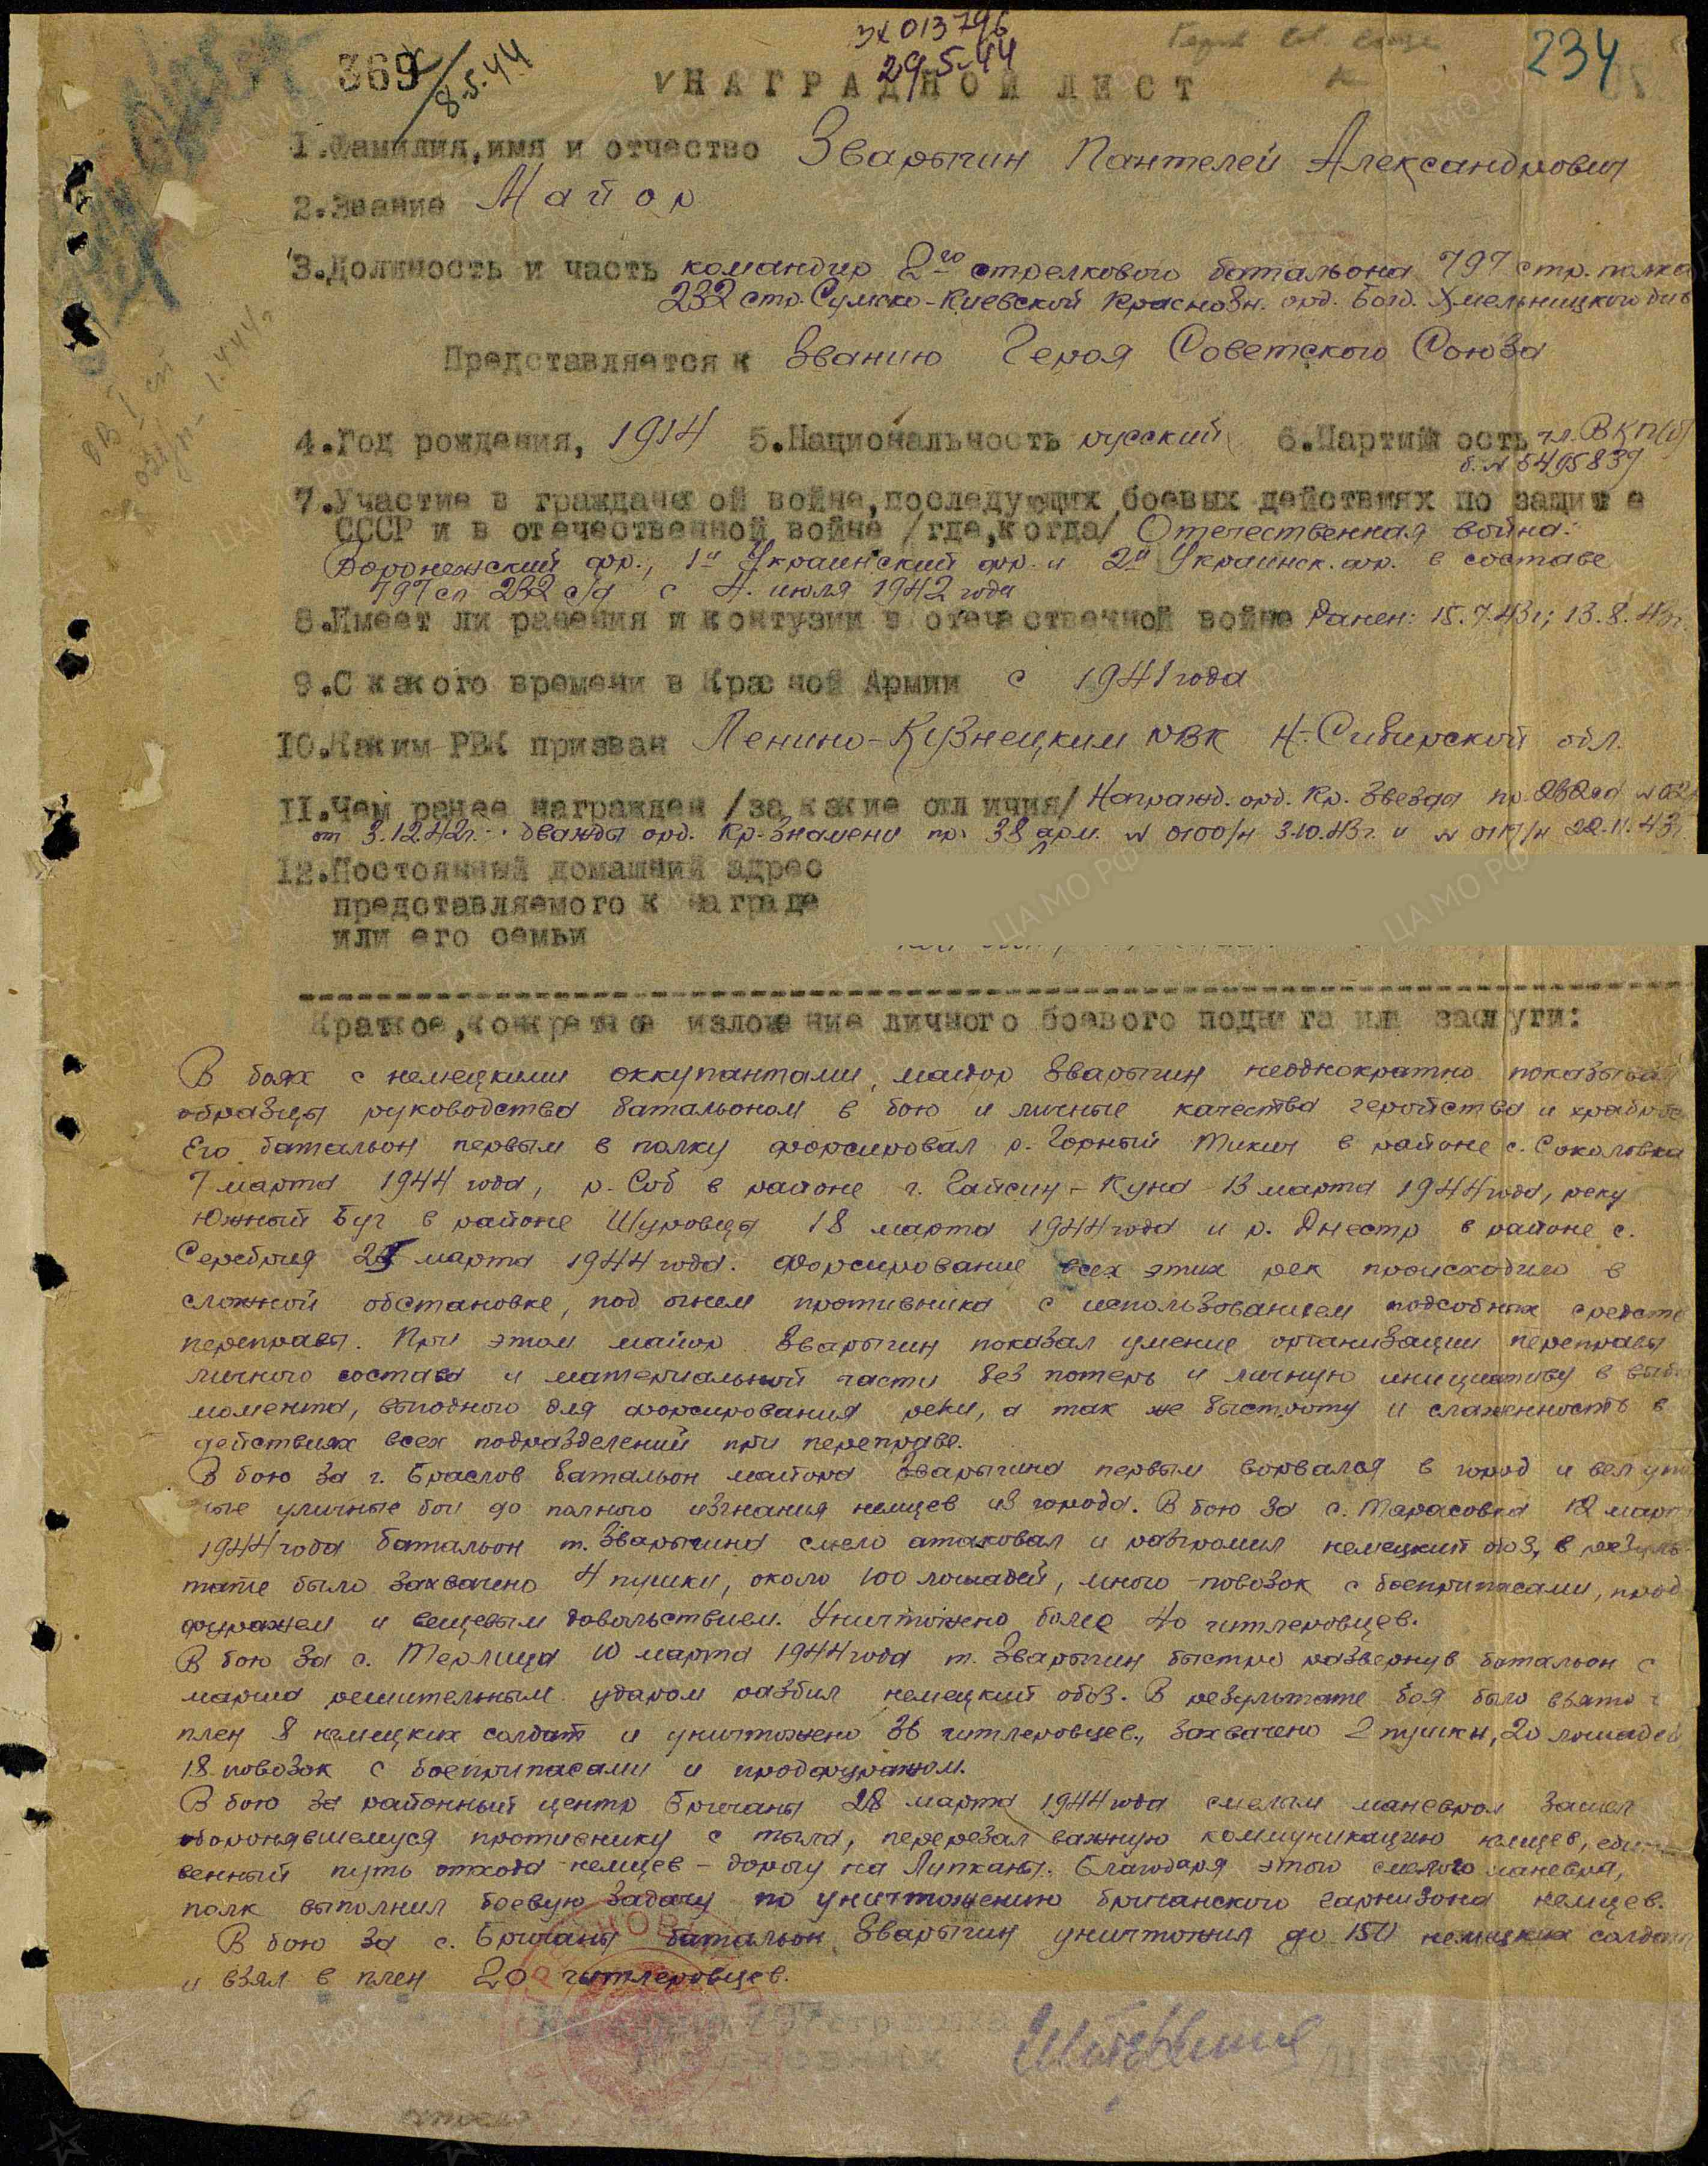 369
8.5.44
013796
29.5.44
234
НАГРАДНОЙ ЛИСТ
1.Фамилия,имя и отчество Зварыгин Пантелей Александрович
2.Звание Майор
3.Должность и часть командир 2го стрелкового батальона 797 стр. полка
232 стр. Сумско-Киевской Краснозн. орд. Богд. Хмельницкого див
Представляется к Званию Героя Советского Союза
4.Год рождения, 1914 5.Национальность русский 6.Партийность чл. ВКП(б)
б. № 5495839
7.Участие в гражданской войне,последующих боевых действиях по защите
СССР и в отечественной войне /где,когда/ Отечественная война:
Воронежский фр., 1й Украинский фр. и 2й Украинск. фр. в составе
797 сп 232 с/д с 4. июля 1942 года
8.Имеет ли ранения и контузии в отечественной войне Ранен: 15.7.43г; 13.8.43г.
9.С какого времени в Красной Армии с 1941 года
10.Каким РВК призван Ленино-Кузнецким РВК Н-Сибирской обл.
11.Чем ранее награжден /за какие отличия/ Награжд. орд. Кр. Звезда пр. 232сд
от 3.12.42г. дважды орд. Кр. Знамени пр. 38 арм. № 0100/н 3.10.43г. и № 22.11.43г.
12.Постоянный домашний адрес
представляемого к награде
или его семьи
Краткое,конкретное изложение личного боевого подвига или заслуги:
В боях с немецкими оккупантами, майор Зварыгин неоднократно показывал
образцы руководства батальоном в бою и личные качества геройства и
Его батальон первым в полку форсировал р. Горный Тикич в районе с. Соколовка
7 марта 1944 года, р. Соб в районе г. Гайсин – Куна 13 марта 1944 года, реку
Южный Буг в районе Шуровцы 18 марта 1944 года и р. Днестр в районе с.
Серебрия марта 1944 года. Форсирование всех этих рек происходило в
сложной обстановке, под огнем противника с использованием подсобных средств
переправы. При этом майор Зварыгин показал умение организации переправы
личного состава и материальной части без потерь и личную инициативу в
момента, выгодного для форсирования реки, а так же быстроту и слаженность в
действиях всех подразделений при переправе.
В бою за г. Браслов батальон майора Зварыгина первым ворвался в город и вел
уличные бои до полного изгнания немцев из города. В бою за с. Тарасовка 12 марта
1944 года батальон т. Зварыгина смело атаковал и разгромил немецкий обоз, в резуль-
тате было захвачено 4 пушки, около 100 лошадей, много повозок с боеприпасами, прод
фуражем и вещевым довольствием. Уничтожено более 40 гитлеровцев.
В бою за с. Терлица 10 марта 1944 года т. Зварыгин быстро развернув батальон с
марша решительным ударом разбил немецкий обоз. В результате боя было взято в
плен 8 немецких солдат и уничтожено 36 гитлеровцев, захвачено 2 пушки, 20 лошадей
18 повозок с боеприпасами и продфуражом.
В бою за районный центр Бричаны 28 марта 1944 года смелым маневром зашел
оборонявшемуся противнику с тыла, перерезал важную коммуникацию немцев, единст-
венный путь отхода немцев – дорогу на Липканы. Благодаря этого смелого маневра,
полк выполнил боевую задачу по уничтожению бричанского гарнизона немцев.
В бою за с. Бричаны батальон Зварыгин уничтожил до 150 немецких солдат
и взял в плен 20 гитлеровцев.